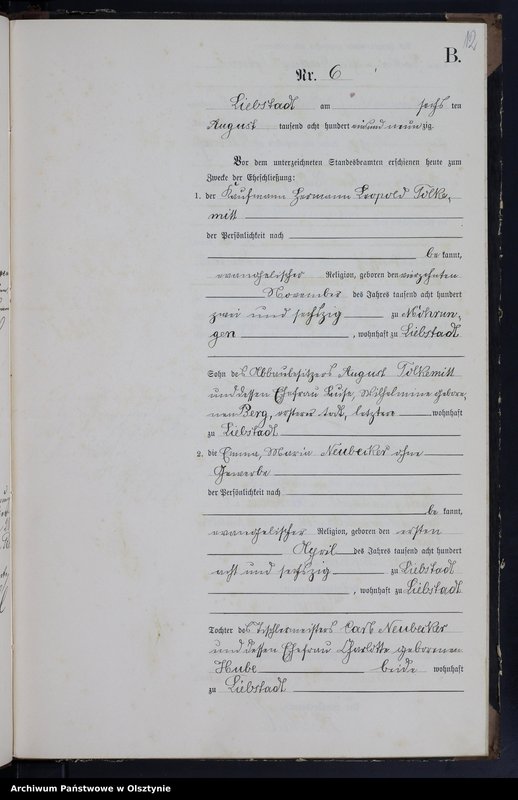 12
B.
Nr. 6
Liebstadt am sechs ten
August tausend acht hundert einund neun zig.
Vor dem unterzeichneten Standesbeamten erschienen heute zum
Zwecke der Eheschließung:
1. der Kaufmann Hermann Leopold Tolke-
mitt
der Persönlichkeit nach
be kannt,
evangelischer Religion, geboren den vierzehnten
November des Jahres tausend acht hundert
zwei und sechszig zu Mohrun-
gen, wohnhaft zu Liebstadt
Sohn des Abbaubesitzers August Tolkemitt
und dessen Ehefrau Luise, Wilhelmine gebore-
nen Berg, ersterer todt, letztere wohnhaft
zu Liebstadt
2. die Emma, Maria Neubecker ohne
Gewerbe
der Persönlichkeit nach
be kannt,
evangelischer Religion, geboren den ersten
April des Jahres tausend acht hundert
acht und sechszig zu Liebstadt
, wohnhaft zu Liebstadt
Tochter des Tischlermeisters Carl Neubecker
und dessen Ehefrau Charlotte geborenen
Hube beide wohnhaft
zu Liebstadt
Archiwum Państwowe w Olsztynie